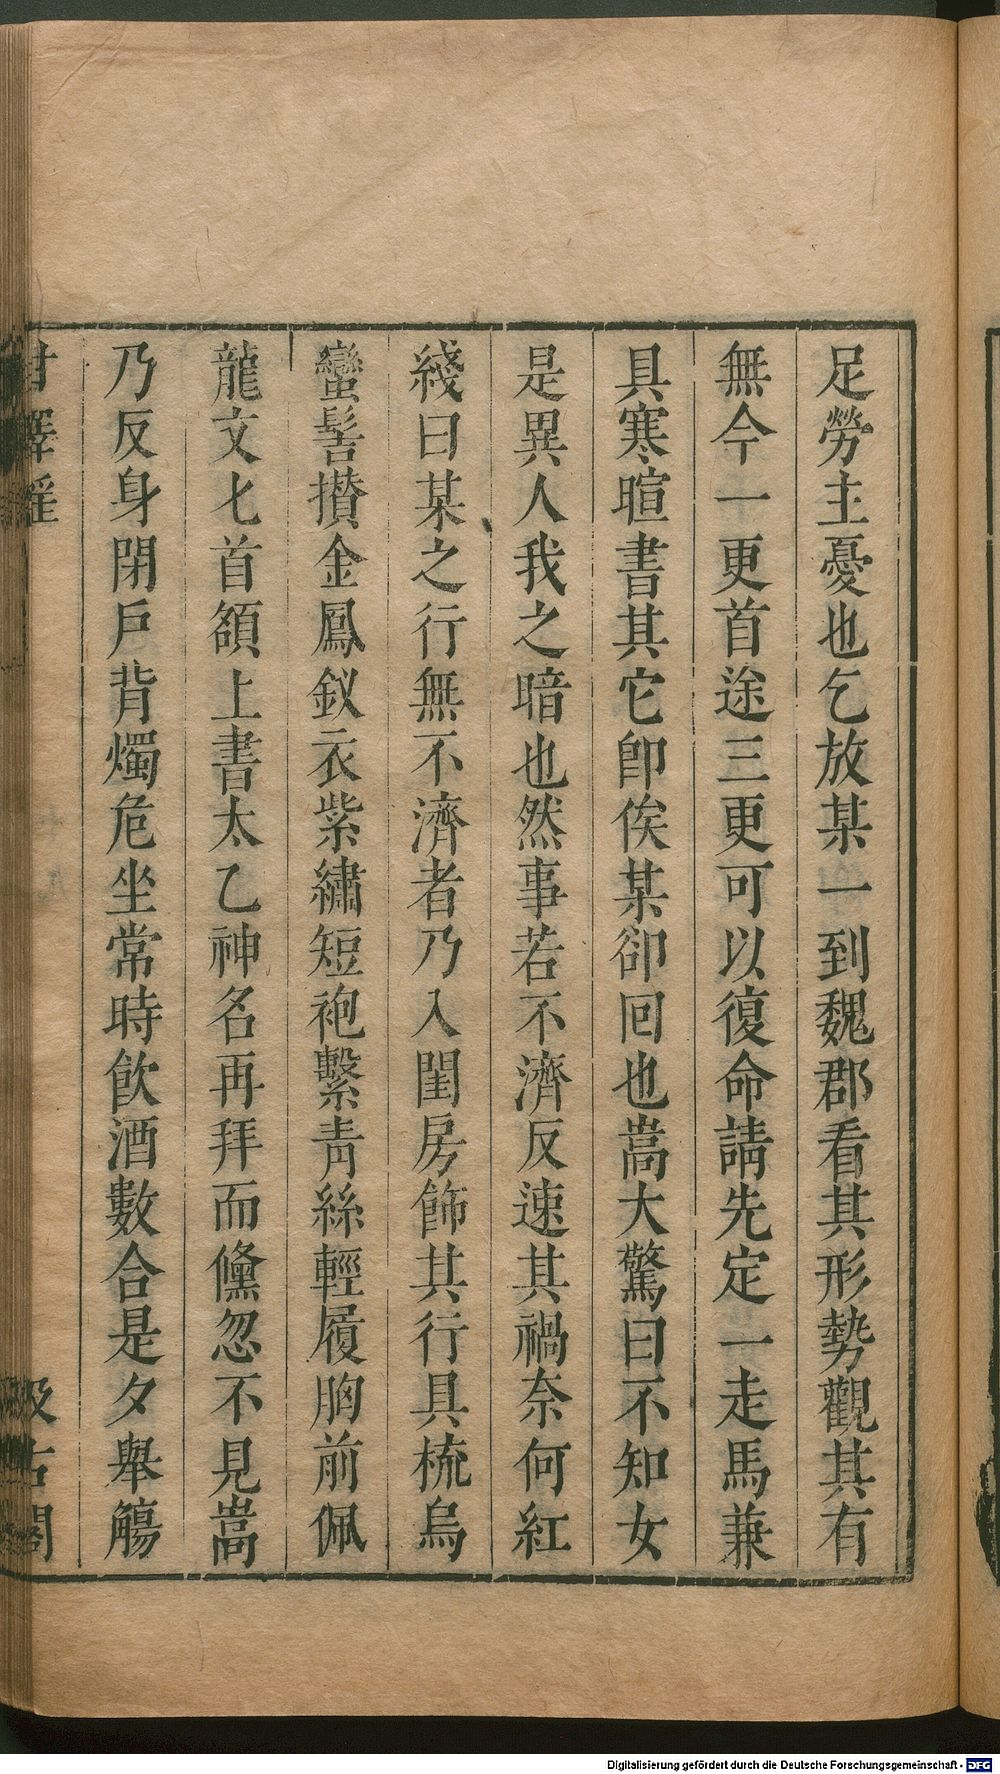 足勞主憂也乞放某一到魏郡看其形勢觀其有
無今一更首途三更可以復命請先定一走馬兼
具寒暄書其它卽俟某卻回也嵩大驚曰不知女
是異人我之暗也然事若不濟反速其禍奈何紅
綫曰某之行無不濟者乃入閨房飾其行具梳烏
蠻髻攅金鳳釵衣紫繡短袍繫靑絲輕履胸前佩
龍文匕首額上書太乙神名再拜而儵忽不見嵩
乃反身閉戶背燭危坐常時飮酒數合是夕舉觴
甘澤謠
汲古閣
Digitalisierung gefördert durch die Deutsche Forschungsgemeinschaft - DFG